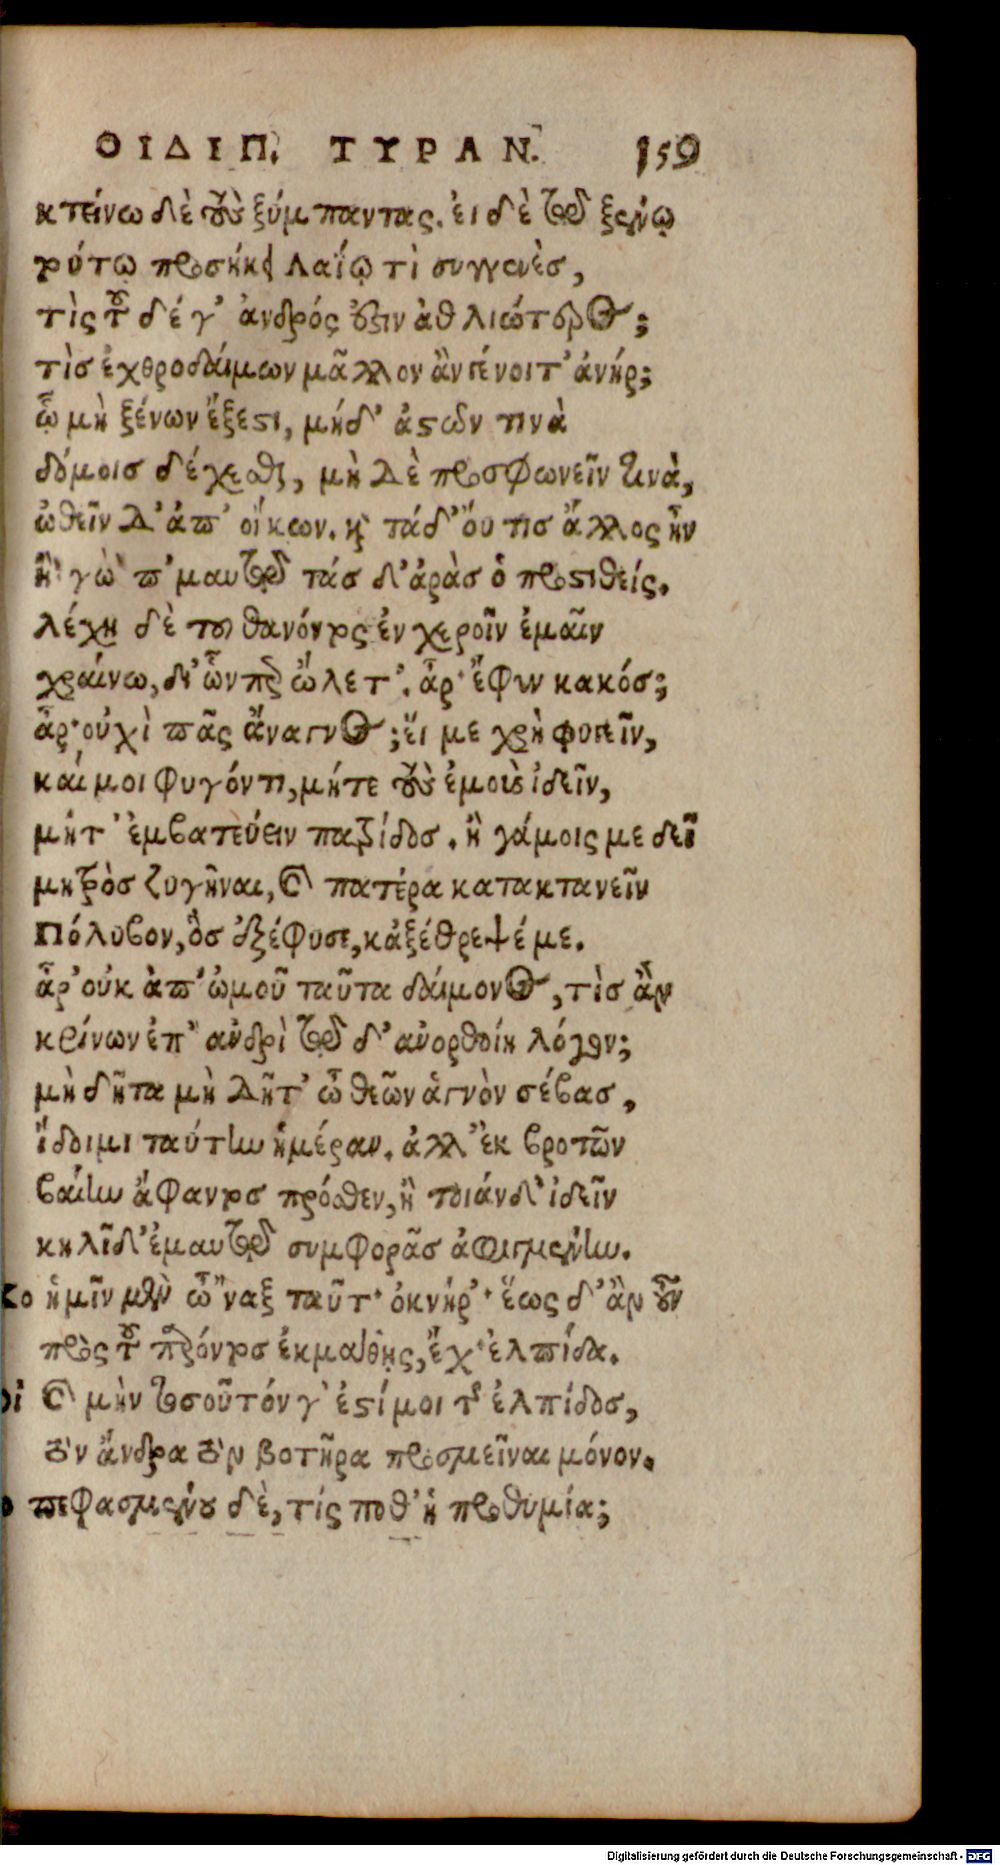 ΟΙΔΙΠ. ΤΥΡΑΝ. 159
κτείνω δὲ τοὺς ξύμπαντας. ἐι δὲ τῷ ξένῳ
τούτῳ προσήκει Λαΐῳ τὶ συγγενὲς,
τὶς τοῦ δέ γ' ἀνδρός ἐστιν ἀθλιώτερος;
τὶσ ἐχθροδαίμων μᾶλλον ἂν γένοιτ' ἀνήρ;
ᾧ μὴ ξένων ἔξεστι, μήδ' ἀστῶν τινὰ
δόμοισ δέχεσθαι, μὴ δὲ προσφωνεῖν τινὰ,
ὠθεῖν δ' ἀπ' οἴκων. καὶ τάδ' ὄυ τισ ἄλλος ἦν
ἢ 'γὼ 'π' μαυτῷ τάσ δ' ἀρὰσ ὁ προστιθείς.
λέχη δὲ του θανόντος ἐν χεροῖν ἐμαῖν
χραίνω, δι' ὧνπερ ὤλετ'. ἆρ' ἔφυν κακός;
ἆρ' οὐχὶ πᾶς ἄναγνος; ἔι με χρὴ φυγεῖν,
καί μοι φυγόντι, μήτε τοὺς ἐμοὺς ἰδεῖν,
μήτ' ἐμβατεύειν πατρίδοσ. ἢ γάμοις με δεῖ
μητρὸσ ζυγῆναι, καὶ πατέρα κατακτανεῖν
Πόλυβον, ὃσ ἐξέφυσε, κἀξέθρεψέ με.
ἆρ' οὐκ ἀπ' ὠμοῦ ταῦτα δαίμονος, τὶσ ἂν
κρίνων ἐπ' ἀνδρὶ τῷ δ' ἀνορθοίη λόγον;
μὴ δῆτα μὴ δῆτ' ὦ θεῶν ἁγνὸν σέβασ,
ἴδοιμι ταύτην ἡμέραν. ἀλλ' ἐκ βροτῶν
βαίην ἄφαντοσ πρόσθεν, ἢ τοιάνδ' ἰδεῖν
κηλῖδ' ἐμαυτῷ συμφορᾶσ ἀφιγμένην.
Χο ἡμῖν μὲν ὦ 'ναξ ταῦτ' ὀκνήρ'· ἕως δ' ἂν οὖν
πρὸς τοῦ παρόντοσ ἐκμάθῃς, ἔχ' ἐλπίδα.
Οἰ καὶ μὴν τοσοῦτόν γ' ἐστί μοι τῆς ἐλπίδοσ,
τὸν ἄνδρα τὸν βοτῆρα προσμεῖναι μόνον.
πεφασμένου δὲ, τίς ποθ' ἡ προθυμία;
Digitalisierung gefördert durch die Deutsche Forschungsgemeinschaft - DFG